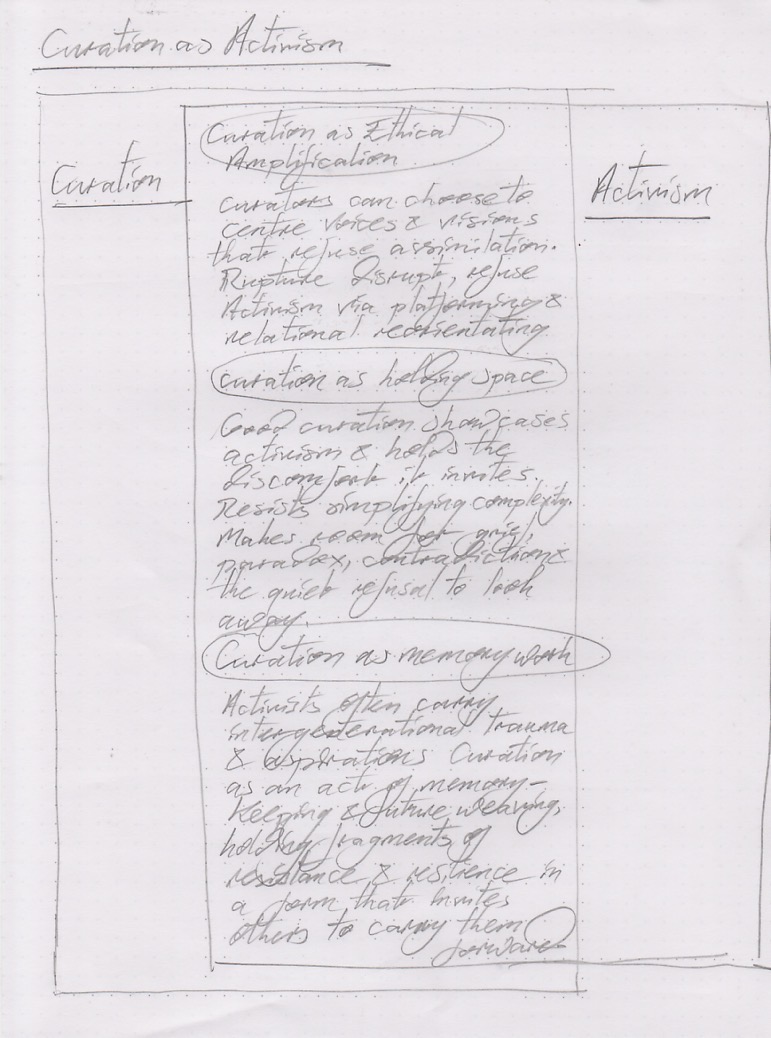 Curation as Activism
Curation
Curation as Ethical
Amplification
Curators can choose to
centre voices & visions
that refuse assimilation.
Rupture disrupt, refuse
Activism via platforming &
relational reorientating
Curation as holding space
Good curation showcases
activism & holds the
discomfort it invites.
Resists simplifying complexity.
Makes room for grief,
paradox, contradiction &
the quiet refusal to look
away.
Curation as memory work
Activists often carry
intergenerational trauma
& aspirations Curation
as an act of memory-
keeping & future weaving,
holding fragments of
resistance & resilience in
a form that invites
others to carry them
forward
Activism